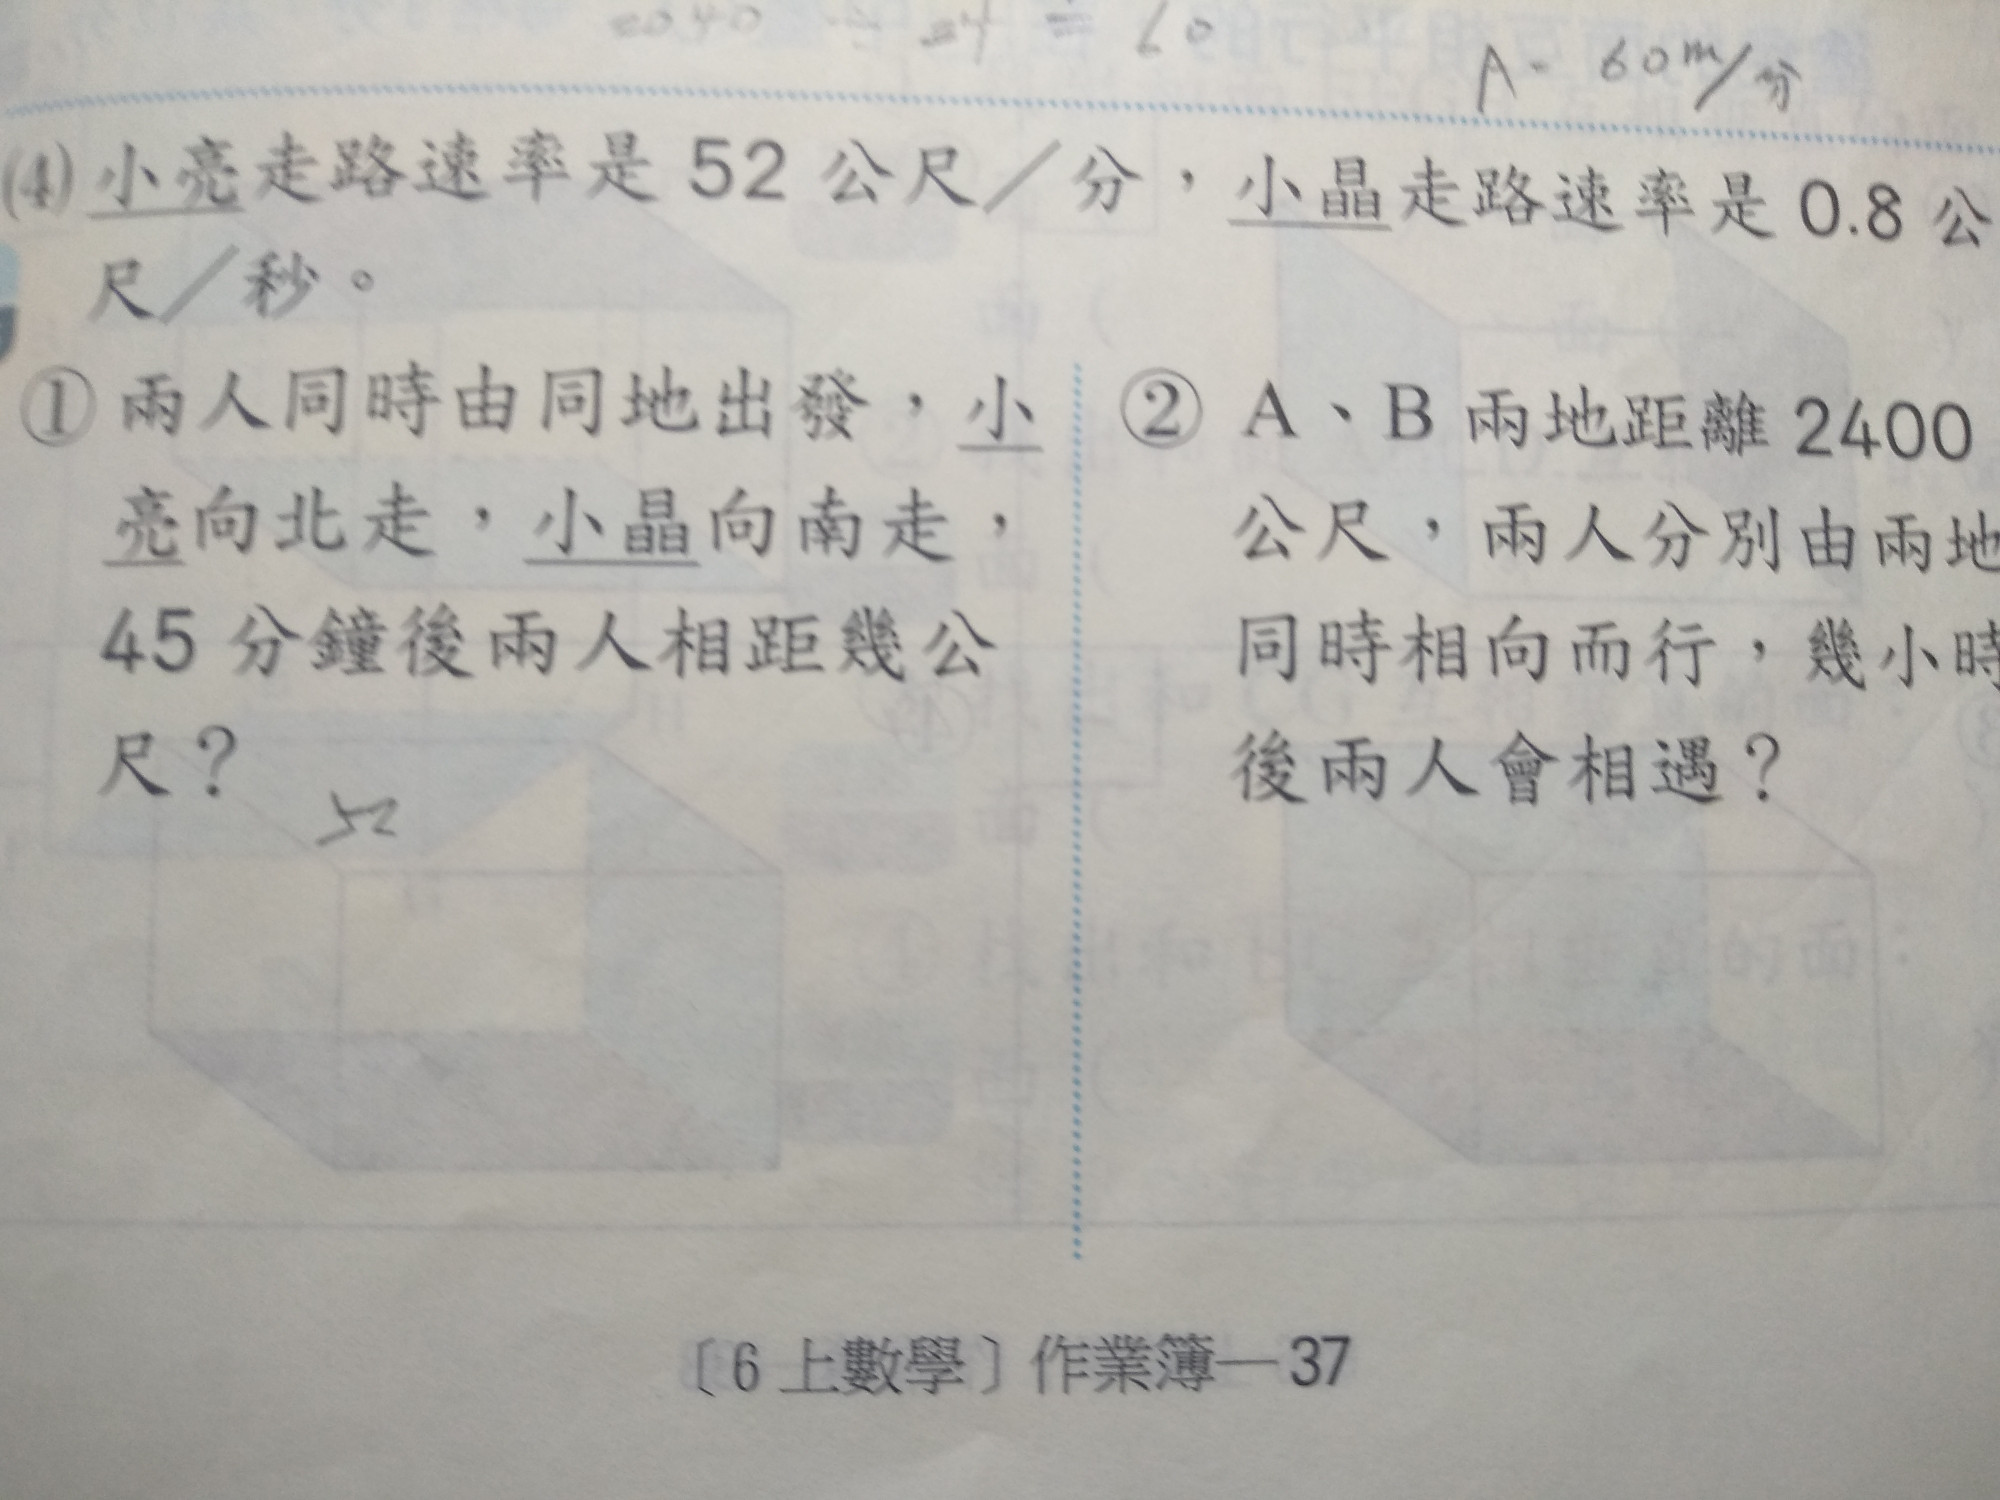 2040 ÷ 34 = 60
A: 60m/分
(4) 小亮走路速率是 52 公尺／分，小晶走路速率是 0.8 公
尺／秒。
① 兩人同時由同地出發，小
亮向北走，小晶向南走，
45 分鐘後兩人相距幾公
尺？
52
② A、B 兩地距離 2400
公尺，兩人分別由兩地
同時相向而行，幾小時
後兩人會相遇？
〔6 上數學〕作業簿—37